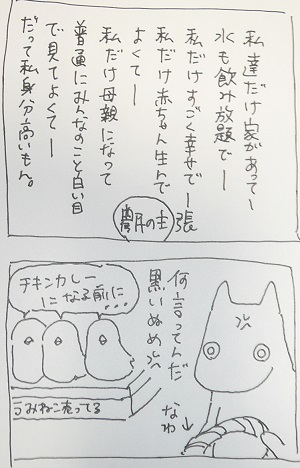 私達だけ家があってー
水も飲み放題でー
私だけすごく幸せでー
私だけ赤ちゃん生んで
よくてー
私だけ母親になって
普通にみんなのこと白い目
で見てよくてー
だって私身分高いもん。
の主張
チキンカレー
になる前に…
何言ってんだ
黒いぬめ
なわ
うみねこ売ってる